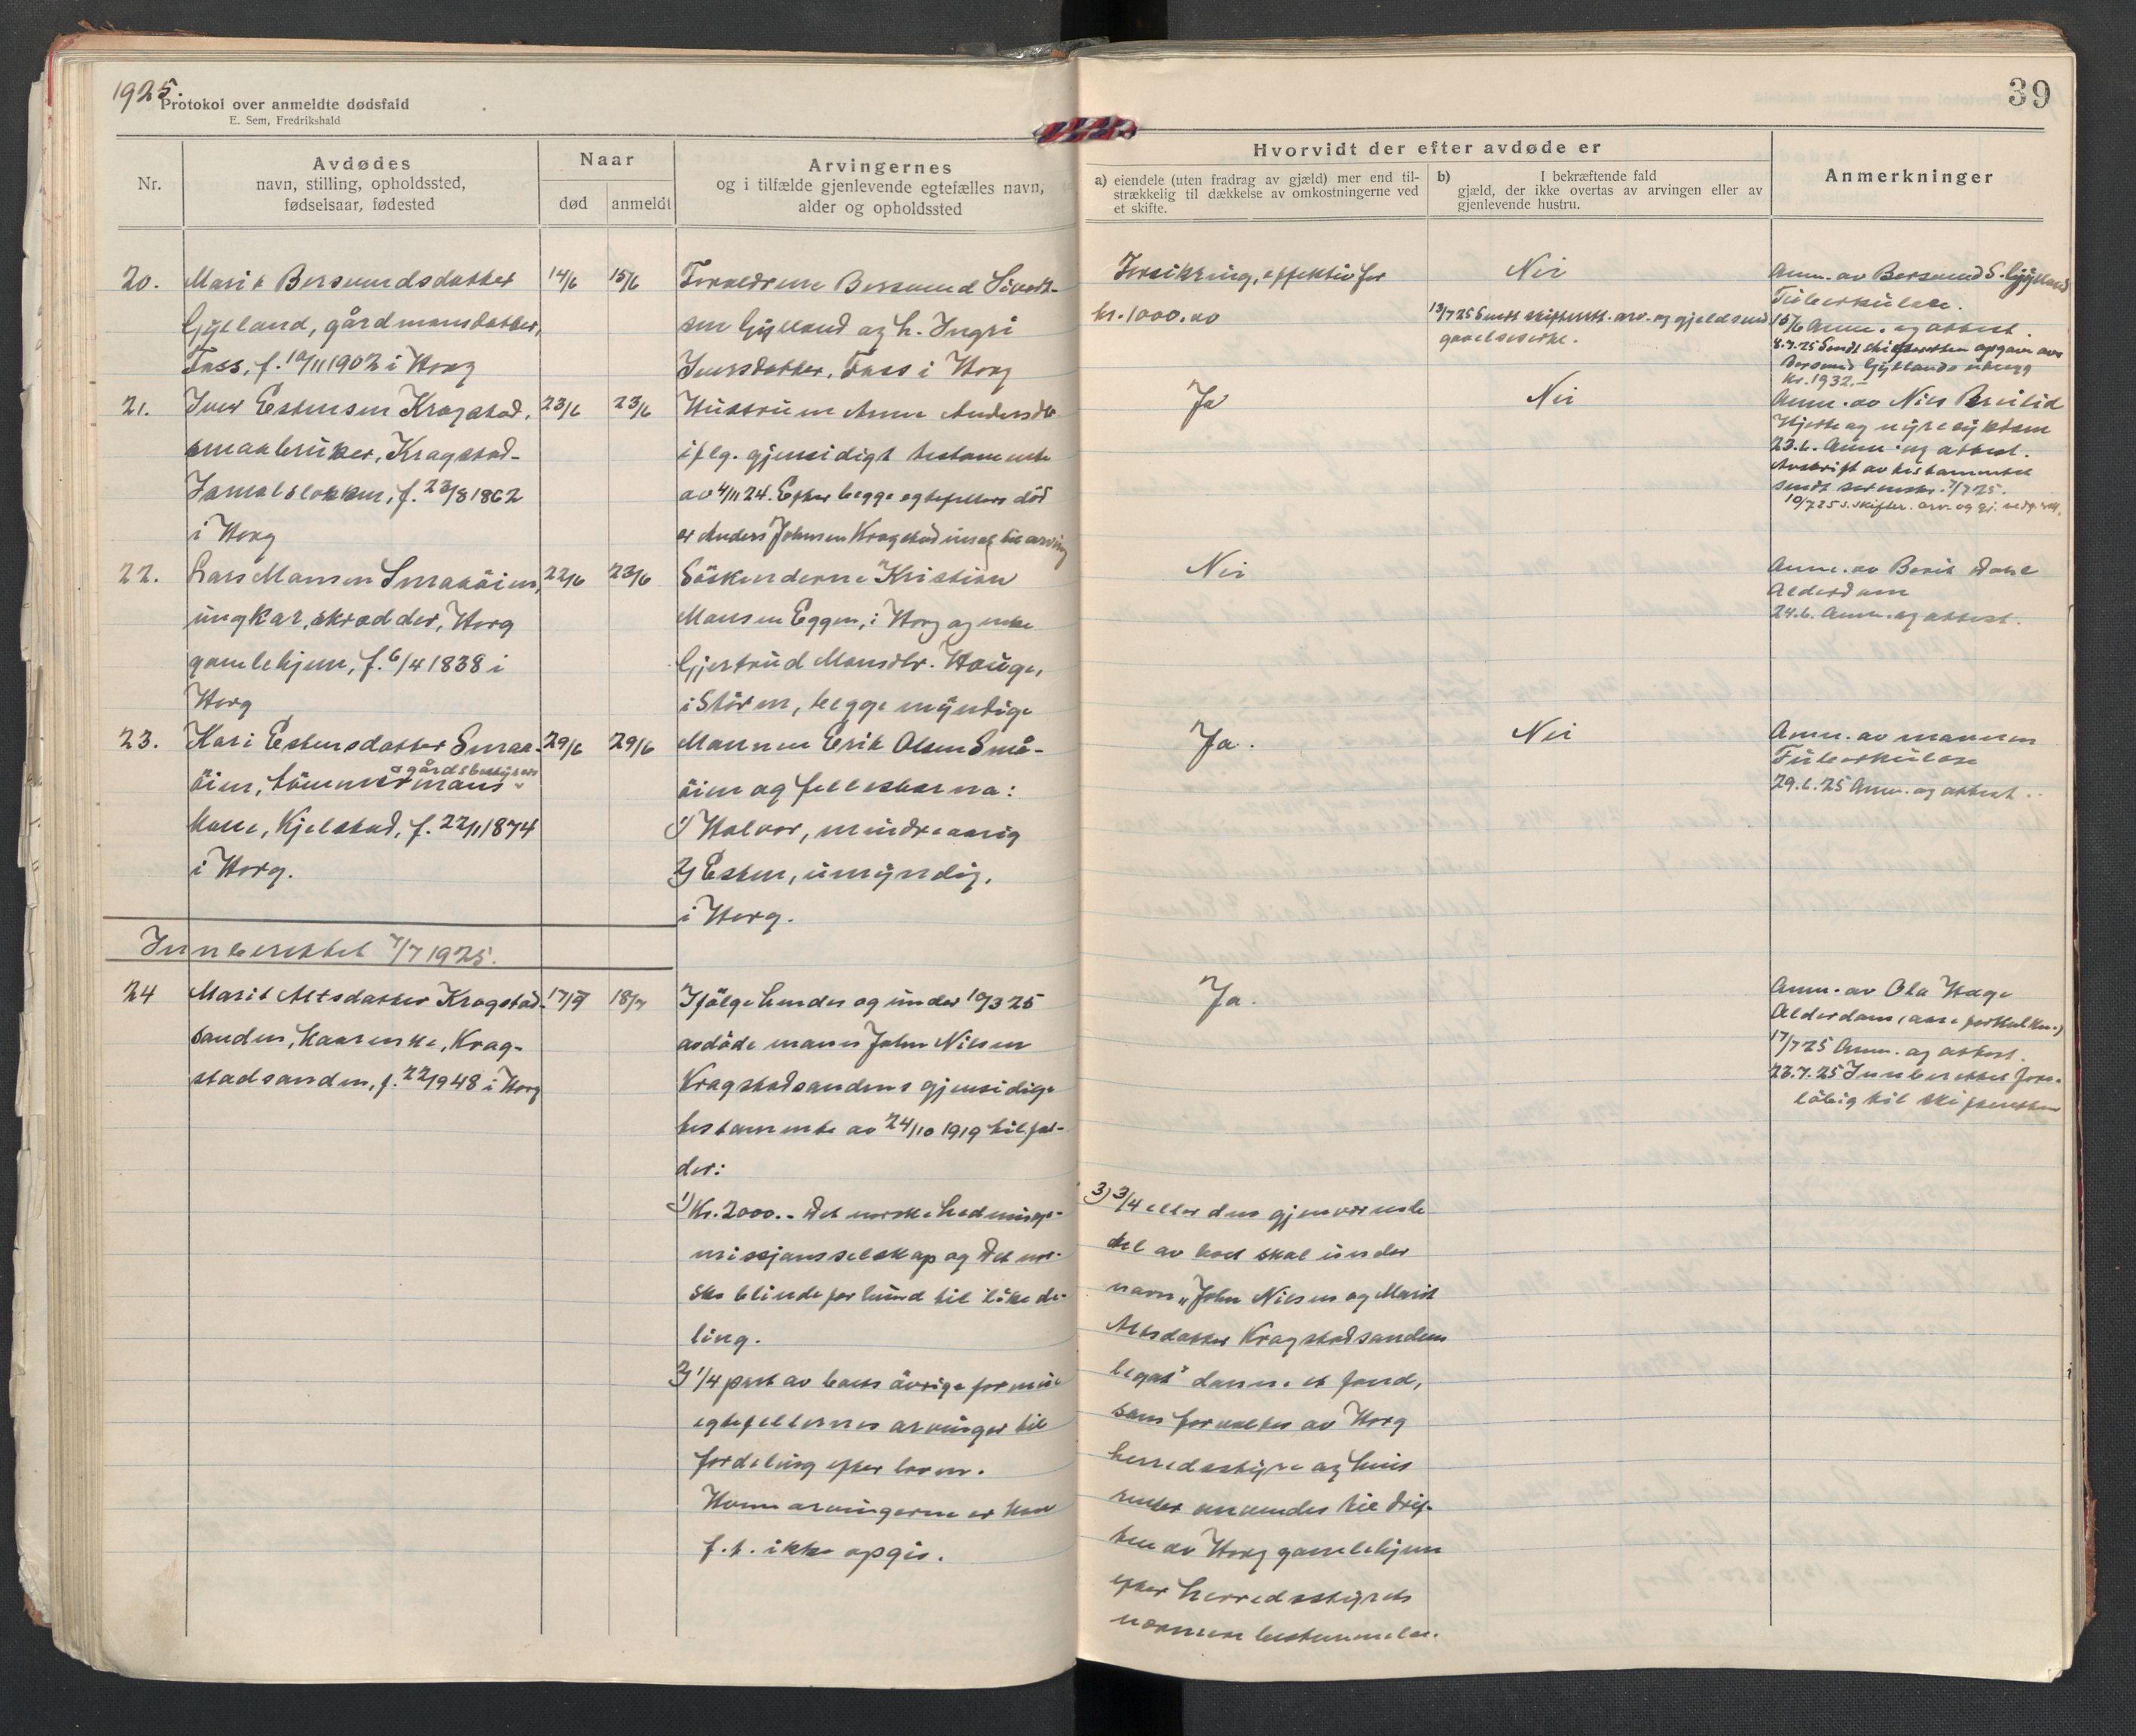 1925.
Protokol over anmeldte dødsfald
E. Sem, Fredrikshald
39
Nr.
Avdødes
navn, stilling, opholdssted,
fødselsaar, fødested
Naar
død
anmeldt
Arvingernes
og i tilfælde gjenlevende egtefælles navn,
alder og opholdssted
Hvorvidt der efter avdøde er
a) eiendele (uten fradrag av gjæld) mer end til-
strækkelig til dækkelse av omkostningerne ved
et skifte.
b) I bekræftende fald
gjæld, der ikke overtas av arvingen eller av
gjenlevende hustru.
Anmerkninger
20.
Marit Bersvendsdatter
Gylland, gårdmansdatter,
Foss, f. 10/11 1902 i Horg
14/6
15/6
Foreldrene Bersvend Sivert-
sen Gylland og h. Ingri
Iversdatter, Foss i Horg
Forsikring, effektiv for
kr. 1000.00
Nei
13/7 25 Sendt skifterett. arv- og gjeldsved
gaaelseserkl.
Anm. av Bersvend S. Gylland
Tuberkulose.
15/6 Anm. og attest.
8.7.25 Sendt skifteretten opgave over
Bersvend Gyllands utlegg
kr. 1932.-
21.
Iver Estensen Kragstad,
smaabruker, Kragstad-
Jamtsløkken, f. 23/8 1862
i Horg
23/6
23/6
Hustruen Anne Andersdtr
iflg. gjensidigt testamente
av 4/11 24. Efter begge egtefellers död
er Anders Johnsen Kragstad insat til arving
Ja
Nei
Anm. av Nils Breilid
Hjerte og nyresykdom
23.6. Anm. og attest.
Avskrift av testamentet
sendt sorenskr. 7/7 25.
10/7 25 s. skifter. arv- og gj.
22.
Lars Monsen Smaaöien,
ungkar, skredder, Horg
gamlehjem, f. 6/4 1838 i
Horg
22/6
23/6
Söskenderne Kristian
Monsen Eggen, i Horg og enke
Gjertrud Monsdtr. Hauge,
i Stören, begge myndige
Nei
Anm. av Berit Dahl
Alderdom
24.6. Anm. og attest.
23.
Kari Estensdatter Smaa-
öien, tömmermans
o gårdsbestyrers
kone, Kjelstad, f. 22/1 1874
i Horg.
29/6
29/6
Mannen Erik Olsen Små-
öien og fellesbarna:
1) Halvor, mindreaarig
2) Esten, umyndig,
i Horg.
Ja.
Nei
Anm. av mannen
Tuberkulose
29.6.25 Anm. og attest.
Innberettet 7/7 1925.
24
Marit Altsdatter Kragstad-
sanden, kaarenke, Krag-
stadsanden, f. 22/9 48 i Horg
17/7
18/7
Ifölge hendes og under 10/3 25
avdöde mann John Nilsen
Kragstadsandens gjensidige
testamente av 24/10 1919 tilfal-
der:
1) Kr. 2000.- Det norske hedninge-
missjonsselskap og Det nor-
ske blindeforbund til like de-
ling.
2) 1/4 part av boets övrige formue
egtefellernes arvinger til
fordeling efter loven.
Hvem arvingerne er kan
f.t. ikke opgis.
Ja.
3) 3/4 eller den gjenværende
del av boet skal under
navn „John Nilsen og Marit
Altsdatter Kragstadsandens
legat" danne et fond,
som forvaltes av Horg
herredsstyre og hvis
renter anvendes til drif-
ten av Horg gamlehjem
efter herredsstyrets
nærmere bestemmelse.
Anm. av Ola Hage
Alderdom
17/7 25 Anm. og attest.
23.7.25 Innberettet fore-
löbig til skifteretten